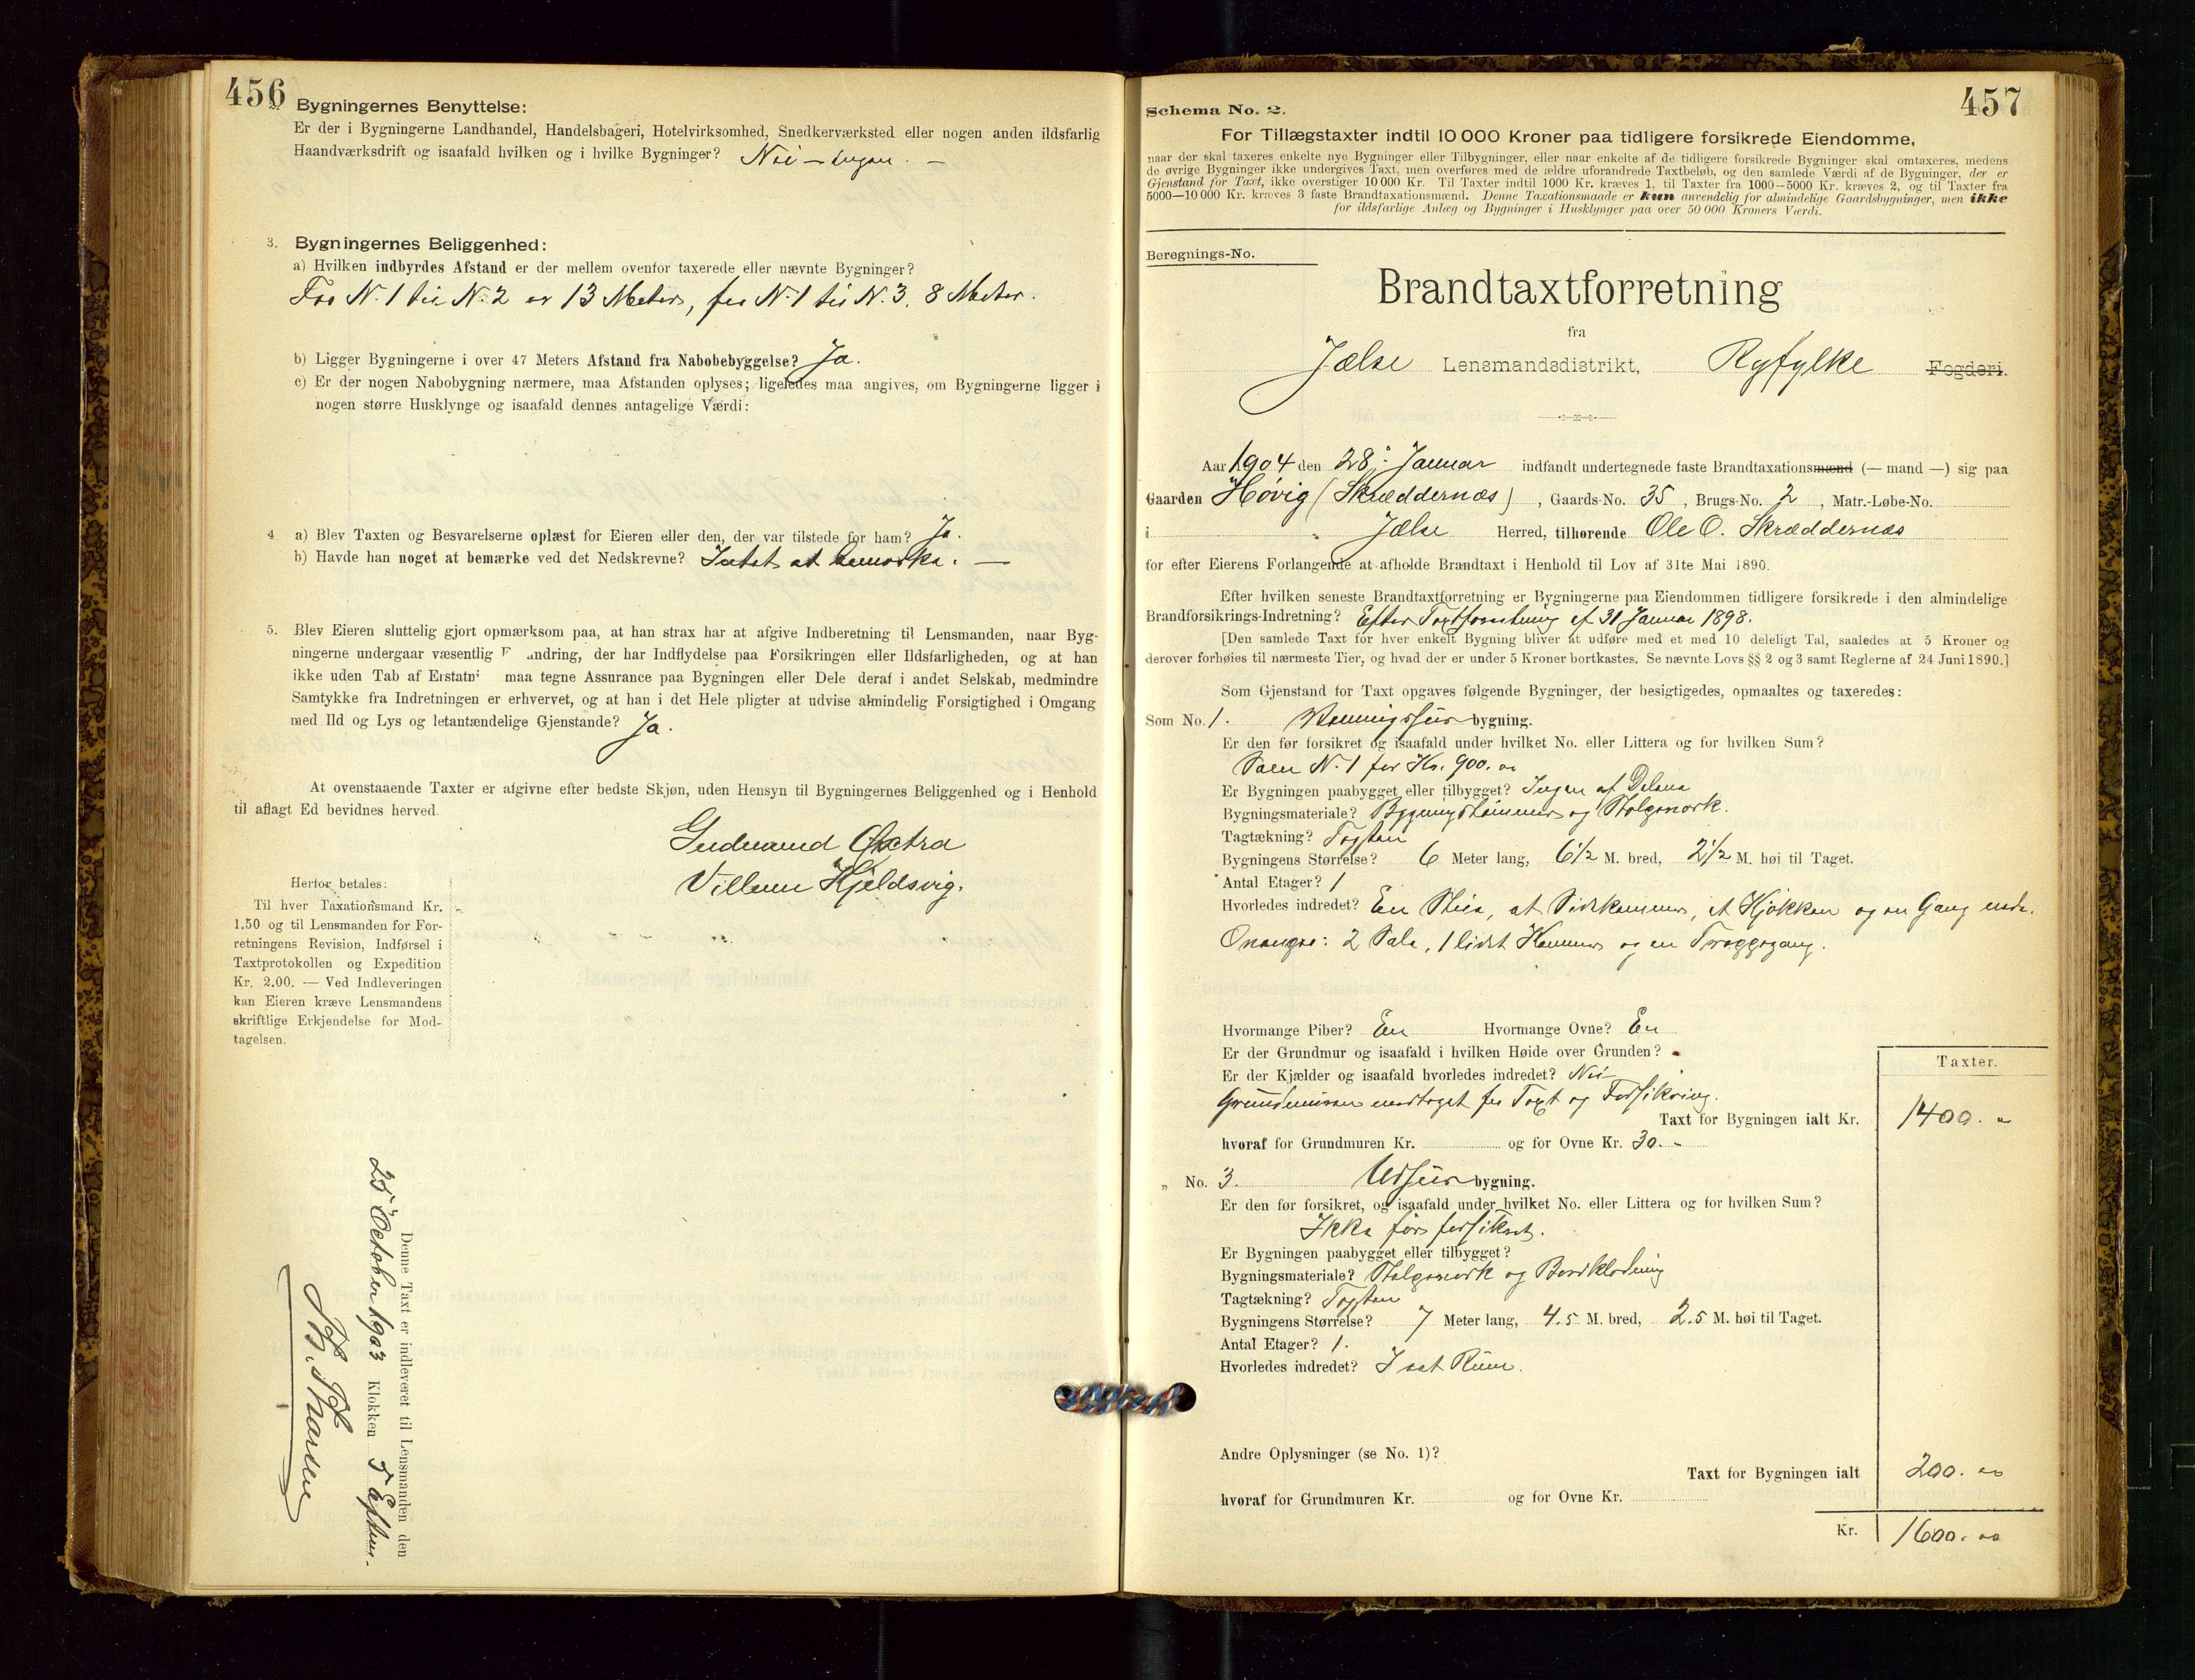 456
2. Bygningernes Benyttelse:
Er der i Bygningerne Landhandel, Handelsbageri, Hotelvirksomhed, Snedkerværksted eller nogen anden ildsfarlig
Haandværksdrift og isaafald hvilken og i hvilke Bygninger? Nei – ingen. –
3. Bygningernes Beliggenhed:
a) Hvilken indbyrdes Afstand er der mellem ovenfor taxerede eller nævnte Bygninger?
Fra N. 1 til N. 2 er 13 Meter, fra N. 1 til N. 3. 8 Meter.
b) Ligger Bygningerne i over 47 Meters Afstand fra Nabobebyggelse? Ja.
c) Er der nogen Nabobygning nærmere, maa Afstanden oplyses; ligeledes maa angives, om Bygningerne ligger i
nogen større Husklynge og isaafald dennes antagelige Værdi:
4 a) Blev Taxten og Besvarelserne oplæst for Eieren eller den, der var tilstede for ham? Ja.
b) Havde han noget at bemærke ved det Nedskrevne? Intet at bemærke. —
5. Blev Eieren sluttelig gjort opmærksom paa, at han strax har at afgive Indberetning til Lensmanden, naar Byg-
ningerne undergaar væsentlig F andring, der har Indflydelse paa Forsikringen eller Ildsfarligheden, og at han
ikke uden Tab af Erstatn maa tegne Assurance paa Bygningen eller Dele deraf i andet Selskab, medmindre
Samtykke fra Indretningen er erhvervet, og at han i det Hele pligter at udvise almindelig Forsigtighed i Omgang
med Ild og Lys og letantændelige Gjenstande? Ja.
At ovenstaaende Taxter er afgivne efter bedste Skjøn, uden Hensyn til Bygningernes Beliggenhed og i Henhold
til aflagt Ed bevidnes herved.
Gudmund
Villum Hjeldsvig.
Herfor betales:
Til hver Taxationsmand Kr.
1.50 og til Lensmanden for For-
retningens Revision, Indførsel i
Taxtprotokollen og Expedition
Kr. 2.00. — Ved Indleveringen
kan Eieren kræve Lensmandens
skriftlige Erkjendelse for Mod-
tagelsen.
Denne Taxt er indleveret til Lensmanden den
25 October 1903 Klokken 5 Efter-
457
Schema No. 2.
For Tillægstaxter indtil 10 000 Kroner paa tidligere forsikrede Eiendomme,
naar der skal taxeres enkelte nye Bygninger eller Tilbygninger, eller naar enkelte af de tidligere forsikrede Bygninger skal omtaxeres, medens
de øvrige Bygninger ikke undergives Taxt, men overføres med de ældre uforandrede Taxtbeløb, og den samlede Værdi af de Bygninger, der er
Gjenstand for Taxt, ikke overstiger 10 000 Kr. Til Taxter indtil 1000 Kr. kræves 1, til Taxter fra 1000—5000 Kr. kræves 2, og til Taxter fra
5000—10 000 Kr. kræves 3 faste Brandtaxationsmænd. Denne Taxationsmaade er kun anvendelig for almindelige Gaardsbygninger, men ikke
for ildsfarlige Anlæg og Bygninger i Husklynger paa over 50 000 Kroners Værdi.
Beregnings-No.
Brandtaxtforretning
fra
Jælse Lensmandsdistrikt, Ryfylke Fogderi.
Aar 1904 den 28. Januar indfandt undertegnede faste Brandtaxationsmænd (— mand —) sig paa
Gaarden Høvig (Skræddernæs), Gaards-No. 35, Brugs-No. 2, Matr.-Løbe-No.
i Jælse Herred, tilhørende Ole O. Skræddernæs
for efter Eierens Forlangende at afholde Brandtaxt i Henhold til Lov af 31te Mai 1890.
Efter hvilken seneste Brandtaxtforretning er Bygningerne paa Eiendommen tidligere forsikrede i den almindelige
Brandforsikrings-Indretning? Efter Taxtforretning af 31 Januar 1898.
[Den samlede Taxt for hver enkelt Bygning bliver at udføre med et med 10 deleligt Tal, saaledes at 5 Kroner og
derover forhøies til nærmeste Tier, og hvad der er under 5 Kroner bortkastes. Se nævnte Lovs §§ 2 og 3 samt Reglerne af 24 Juni 1890.]
Som Gjenstand for Taxt opgaves følgende Bygninger, der besigtigedes, opmaaltes og taxeredes:
Som No. 1. Vaaningshus bygning.
Er den før forsikret og isaafald under hvilket No. eller Littera og for hvilken Sum?
Som N. 1 for Kr. 900.
Er Bygningen paabygget eller tilbygget? Ingen af Delene
Bygningsmateriale? Bygningstømmer og Stolpeverk.
Tagtækning? Tagsten
Bygningens Størrelse? 6 Meter lang, 6 1/2 M. bred, 2 1/2 M. høi til Taget.
Antal Etager? 1
Hvorledes indredet? En Stue, et Sidekammer, et Kjøkken og en Gang nede.
Ovenpaa: 2 Sale, 1 lidet Kammer og en Trappegang.
Hvormange Piber? En Hvormange Ovne? En
Er der Grundmur og isaafald i hvilken Høide over Grunden?
Er der Kjælder og isaafald hvorledes indredet? Nei
Grundmuren undtaget for Taxt og Forsikring.
Taxter.
Taxt for Bygningen ialt Kr. 1400.
hvoraf for Grundmuren Kr. og for Ovne Kr. 30.-
„ No. 3. Udhus bygning.
Er den før forsikret, og isaafald under hvilket No. eller Littera og for hvilken Sum?
Ikke før forsikret.
Er Bygningen paabygget eller tilbygget?
Bygningsmateriale? Stolpeverk og Bordklædning
Tagtækning? Tagsten
Bygningens Størrelse? 7 Meter lang, 4.5 M. bred, 2.5 M. høi til Taget.
Antal Etager? 1.
Hvorledes indredet? I eet Rum.
Andre Oplysninger (se No. 1)?
Taxt for Bygningen ialt 200. 00
hvoraf for Grundmuren Kr. og for Ovne Kr.
Kr. 1600. 00